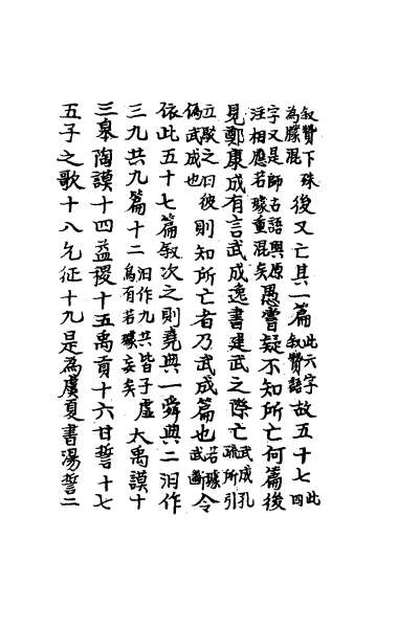 叙贊下殊為朦混後又亡其一篇此六字叙贊語故五十七此四
字又是師古語與原注相應若璩重混矣愚嘗疑不知所亡何篇後
見鄭康成有言武成逸書建武之際亡武成孔疏所引
立駁之曰彼偽武成也則知所亡者乃武成篇也若璩武斷令
依此五十七篇叙次之則堯典一舜典二汨作
三九共九篇十二汨作九共皆子虛烏有若璩妄矣大禹謨十
三皋陶謨十四益稷十五禹貢十六甘誓十七
五子之歌十八允征十九是為虞夏書湯誓二